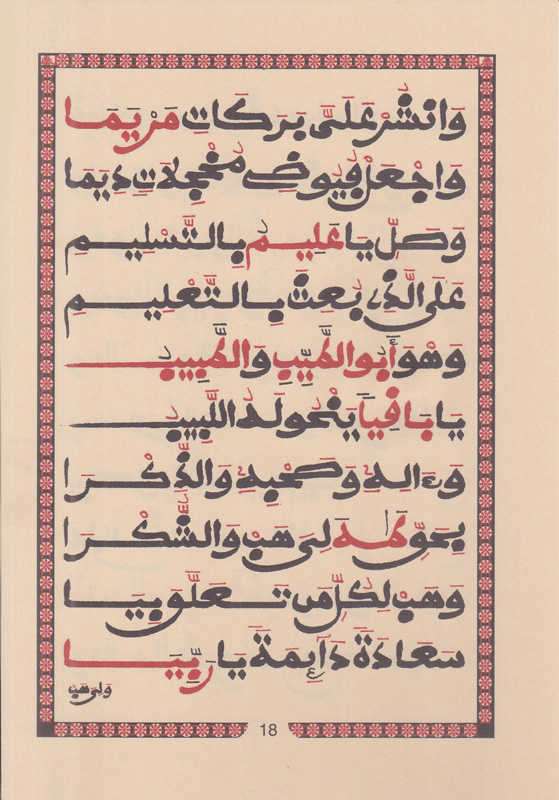 وَانشُرْ عَلَيَّ بَرَكَاتِ مَرْيَمَا
وَاجْعَلْ فُيُوضِي مُخْجِلَاتٍ دِيَمَا
وَصَلِّ يَا عَلِيمُ بِالتَّسْلِيمِ
عَلَى الَّذِي بُعِثَ بِالتَّعْلِيمِ
وَهْوَ أَبُو الطَّيِّبِ وَالطَّبِيبُ
يَا بَاقِياً يَنْحُو لَهُ اللَّبِيبُ
وَءَالِهِ وَصَحْبِهِ وَالذِّكْرَا
بِحَقِّ طَهَ لِيَ هَبْ وَالشُّكْرَا
وَهَبْ لِكُلِّ مَن تَعَلَّقَ بِيَا
سَعَادَةً دَآئِمَةً يَا رَبِّيَا
وَلِيَ هَبْ
18